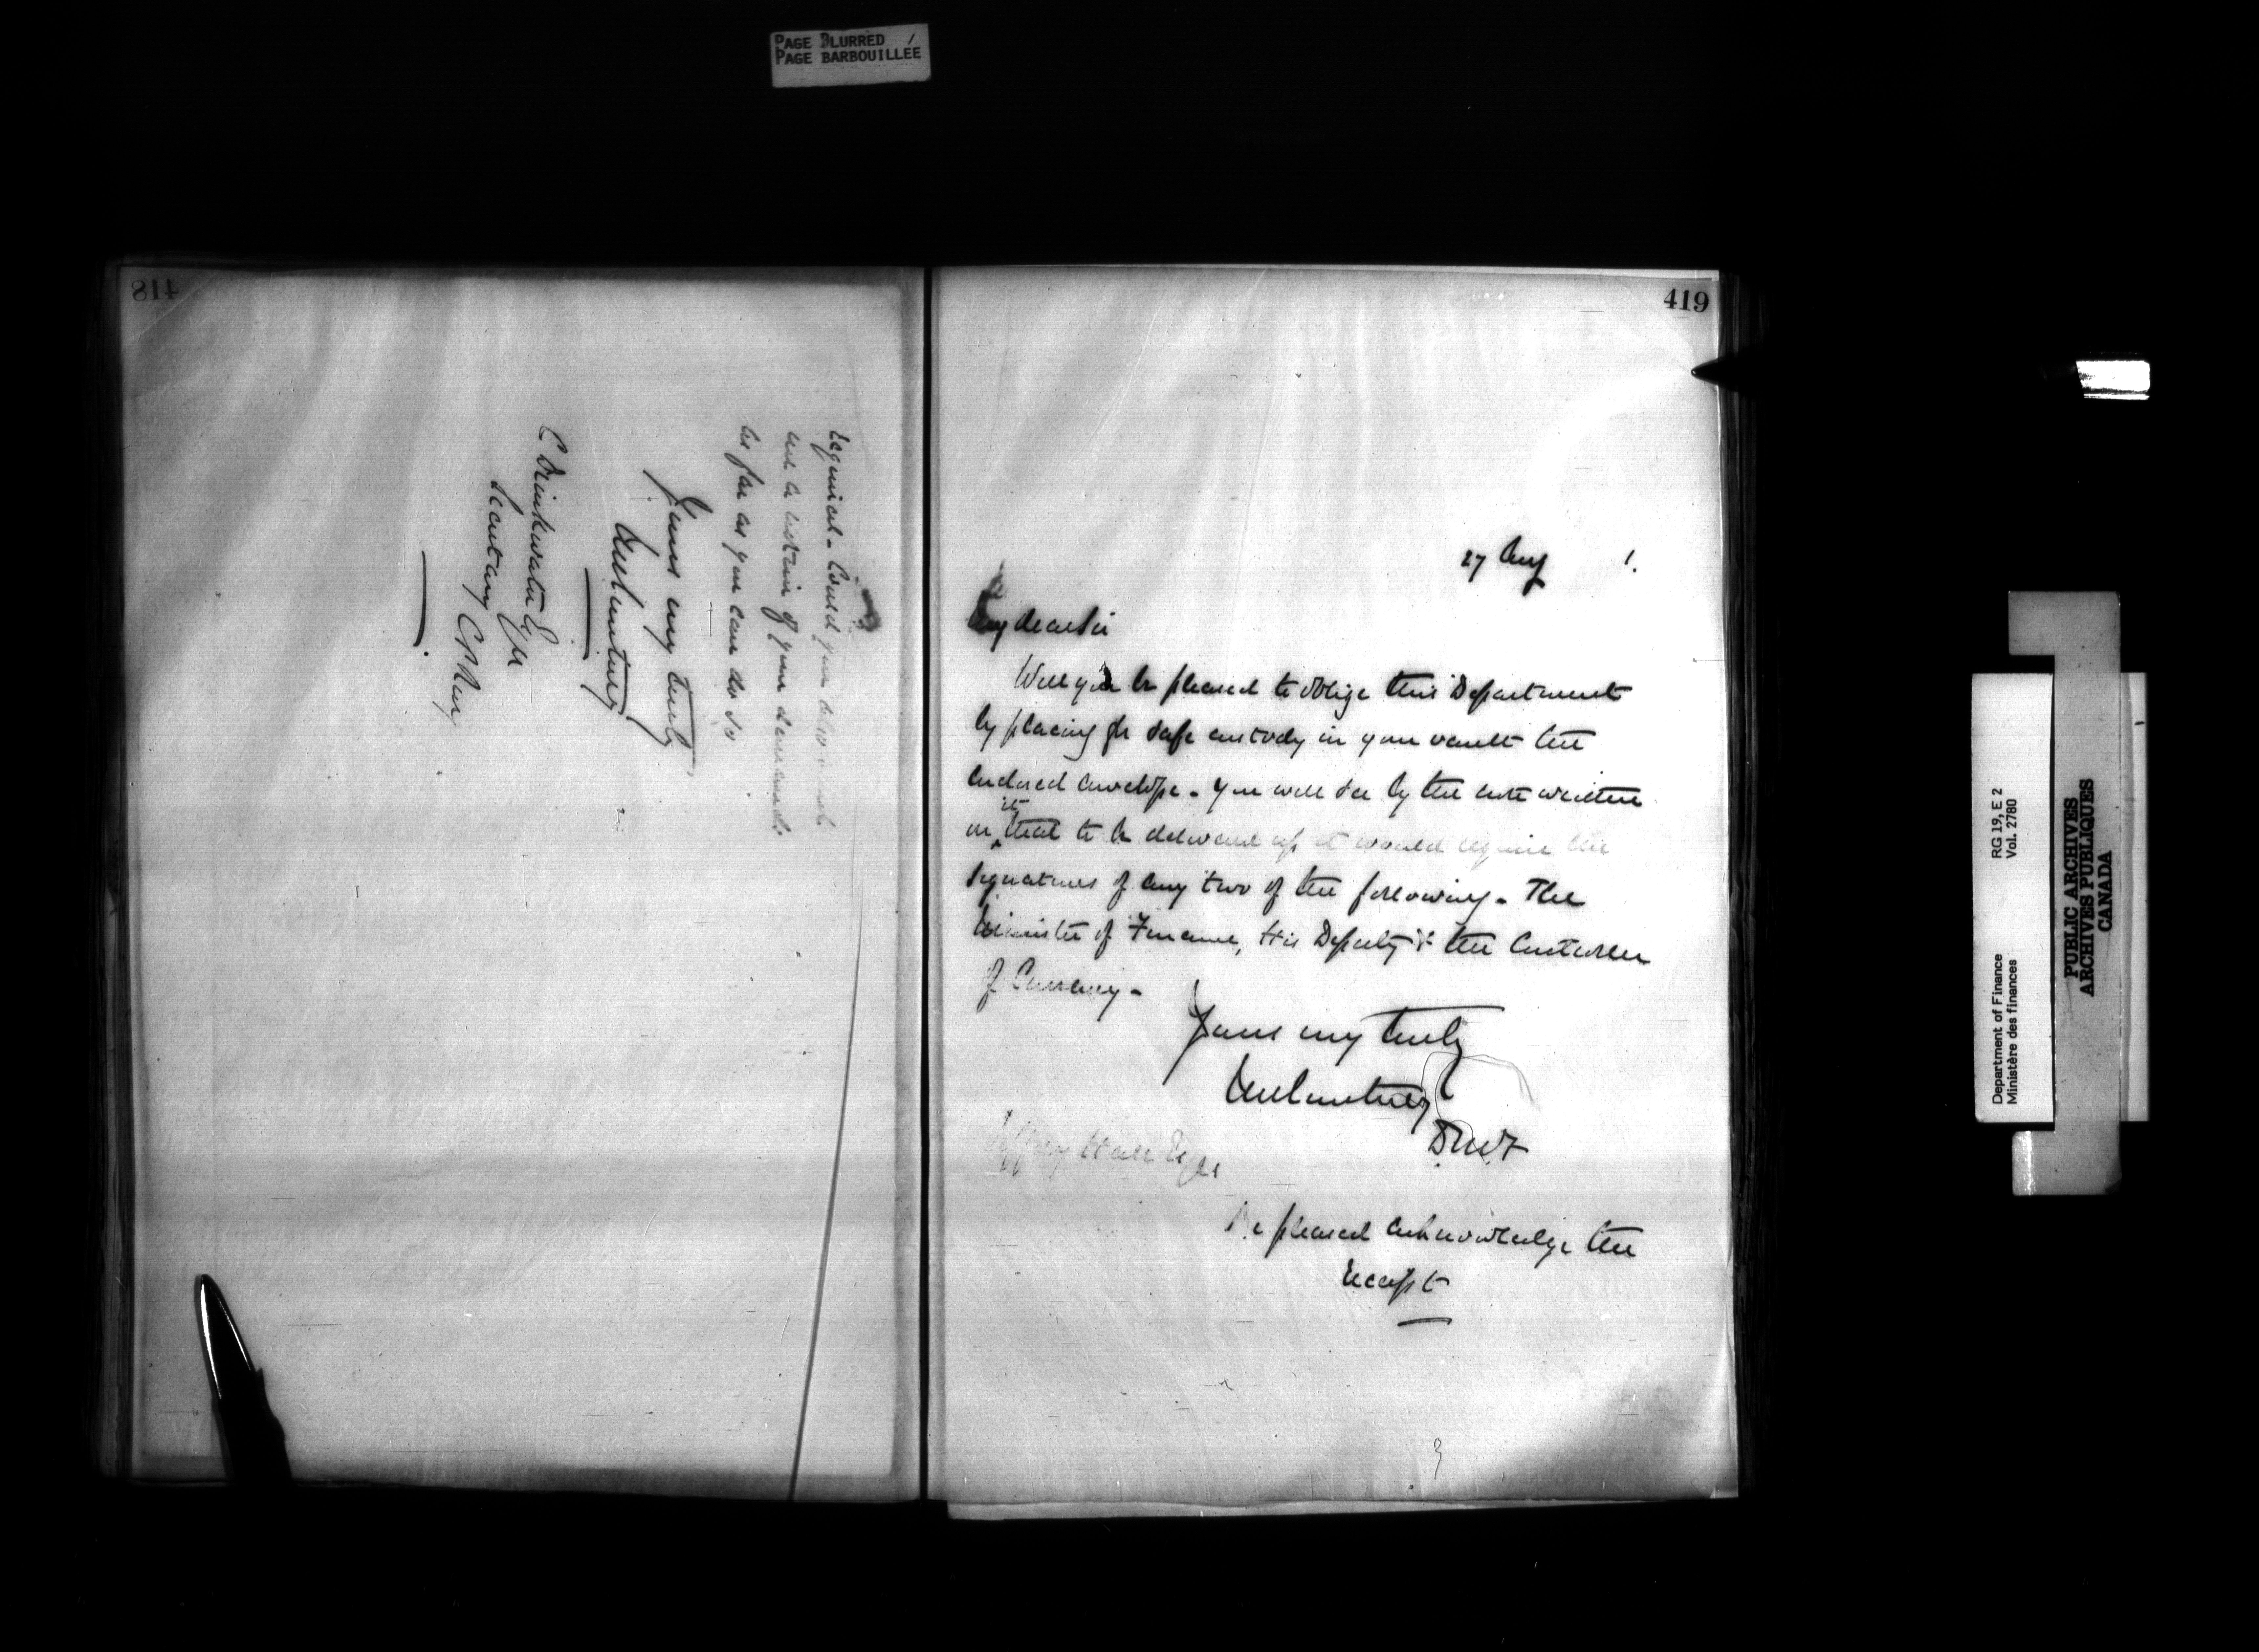 PAGE BLURRED /
PAGE BARBOUILLÉE
418
required - Could you also
and a listing of your demands
as far as you can do so
Yours very truly
JMCourtney
C Drinkwater Esq
Secretary CPRwy
419
27 Aug 1.
My dear Sir
Will you be pleased to oblige this Department
by placing for safe custody in your vault the
enclosed envelope - You will see by the note written
on it that to be delivered up it would require the
signatures of any two of the following - The
Minister of Finance, His Deputy & the Controller
of Currency -
Yours very truly
JMCourtney
DMF
Jeffrey Hale Esqr
Be pleased acknowledge the
receipt
Department of Finance
Ministère des finances
RG 19, E 2
Vol. 2780
PUBLIC ARCHIVES
ARCHIVES PUBLIQUES
CANADA